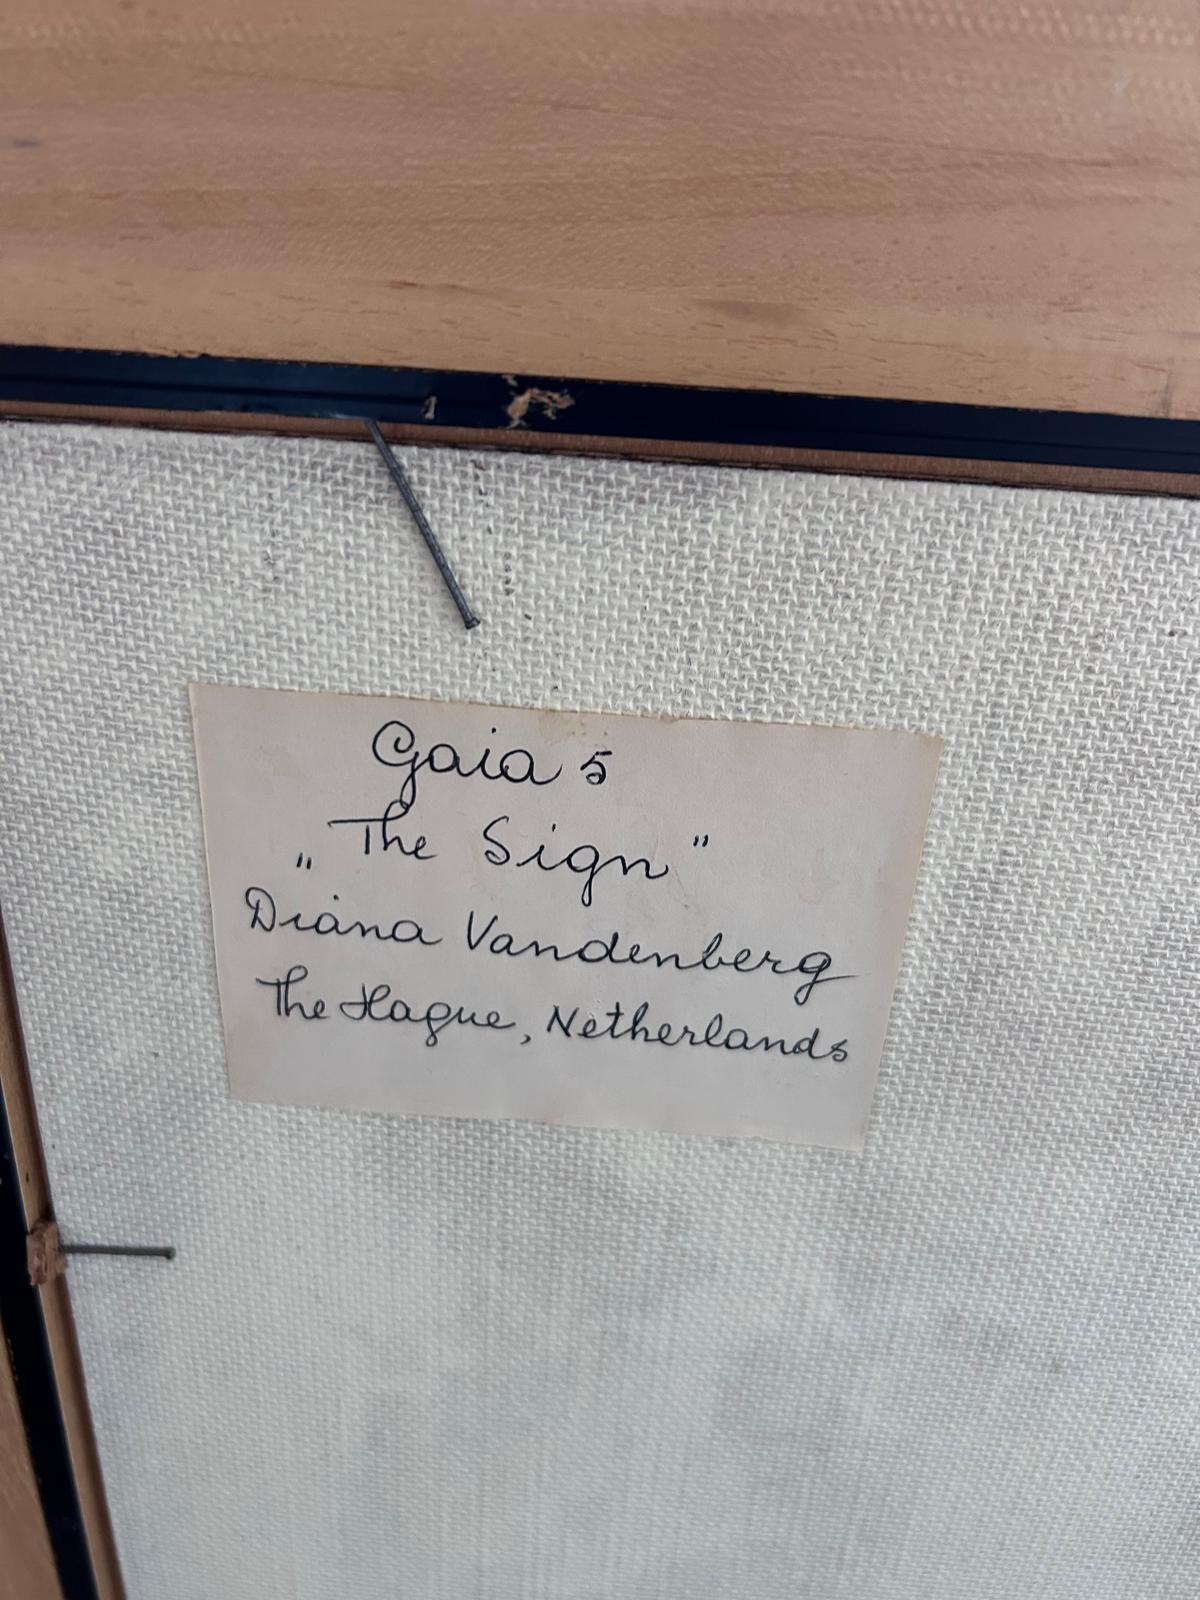 Gaia 5
„The Sign"
Diana Vandenberg
The Hague, Netherlands